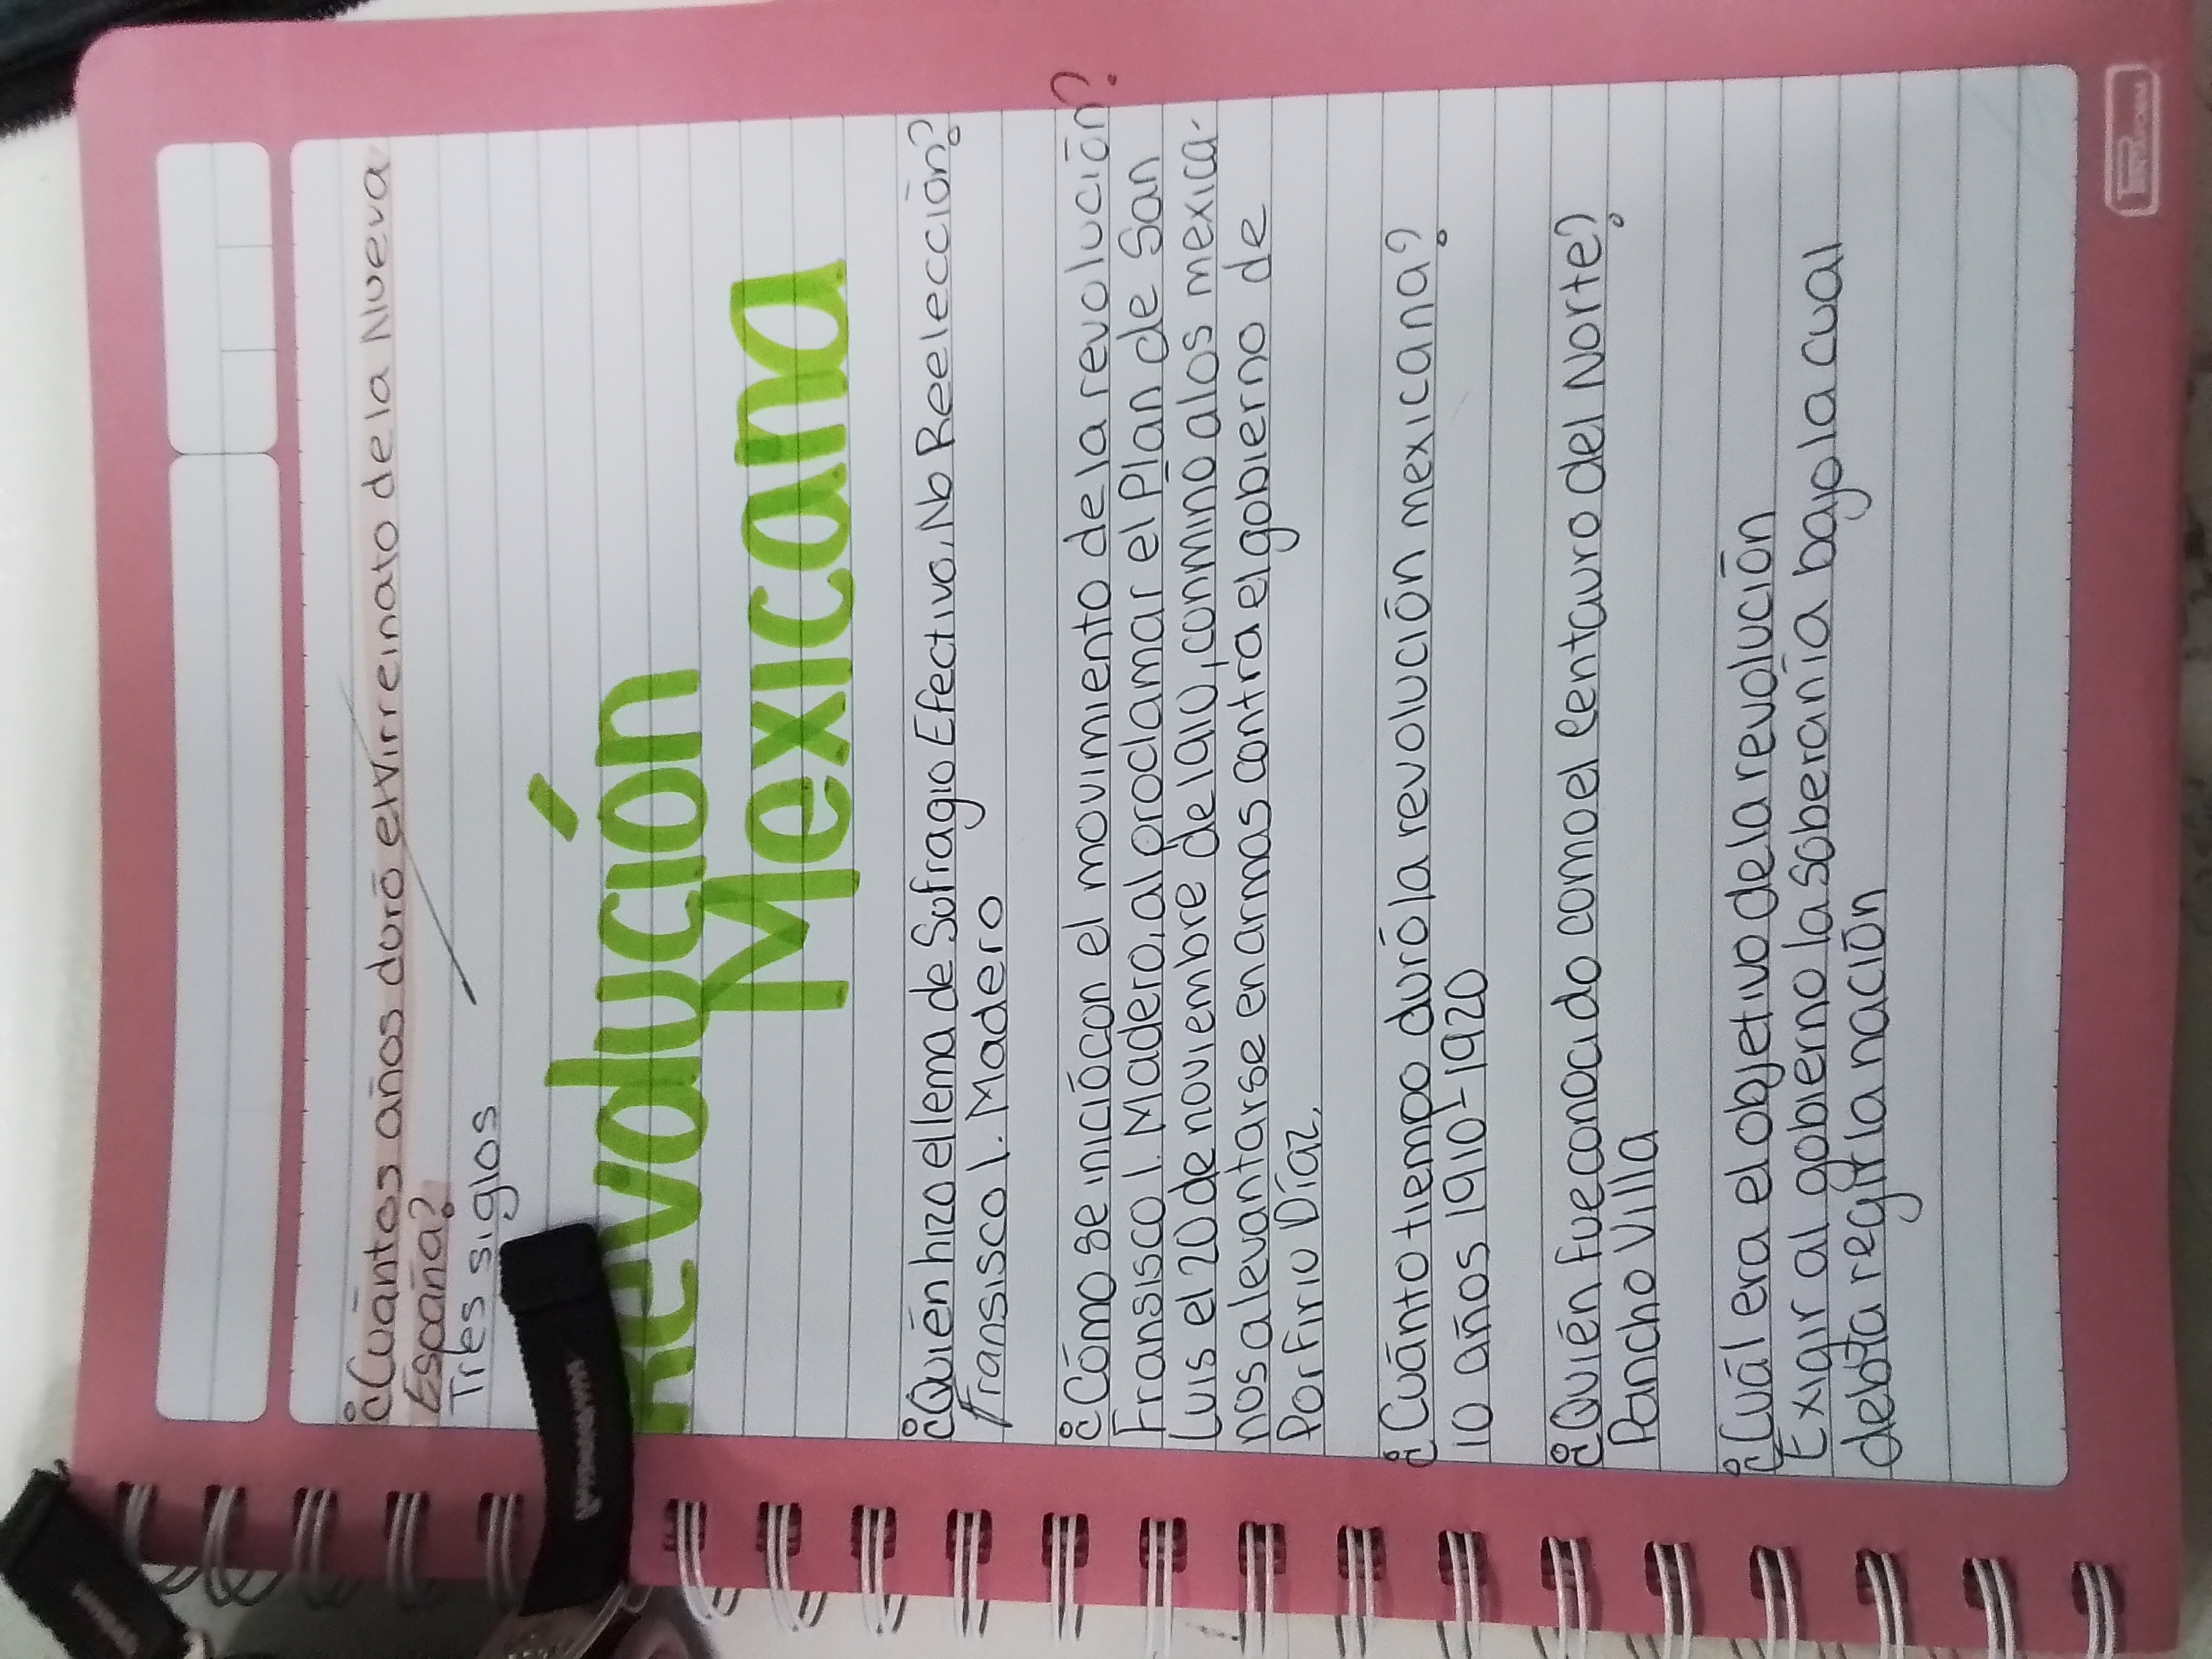 ¿Cuántos años duró el virreinato de la Nueva
España?
Tres siglos
Revolución
Mexicana
¿Quién hizo el lema de Sufragio Efectivo, No Reelección?
Fransisco I. Madero
¿Cómo se inició con el movimiento de la revolución?
Fransisco I. Madero, al proclamar el Plan de San
Luis el 20 de noviembre de 1910, conmino a los mexica-
nos a levantarse en armas contra el gobierno de
Porfirio Díaz.
¿Cuánto tiempo duró la revolución mexicana?
10 años 1910-1920
¿Quién fue conocido como el Centauro del Norte?
Pancho Villa
¿Cuál era el objetivo de la revolución
Exigir al gobierno la soberanía bajo la cual
debía regir la nación